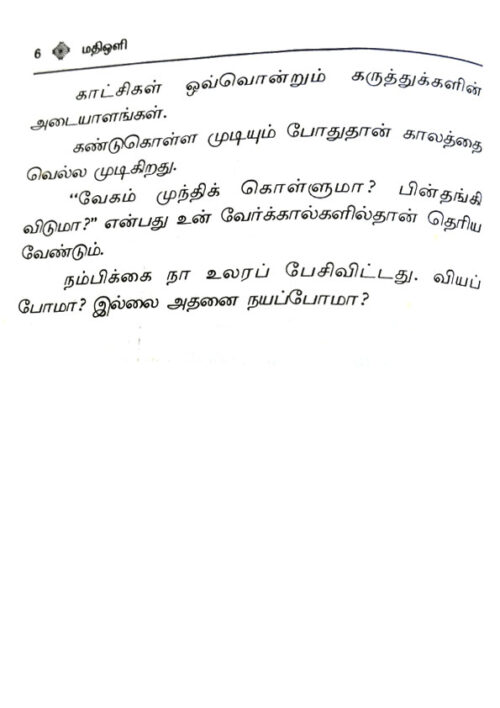 6 மதிஒளி
காட்சிகள் ஒவ்வொன்றும் கருத்துக்களின்
அடையாளங்கள்.
கண்டுகொள்ள முடியும் போதுதான் காலத்தை
வெல்ல முடிகிறது.
“வேகம் முந்திக் கொள்ளுமா? பின்தங்கி
விடுமா?” என்பது உன் வேர்க்கால்களில்தான் தெரிய
வேண்டும்.
நம்பிக்கை நா உலரப் பேசிவிட்டது. வியப்
போமா? இல்லை அதனை நயப்போமா?